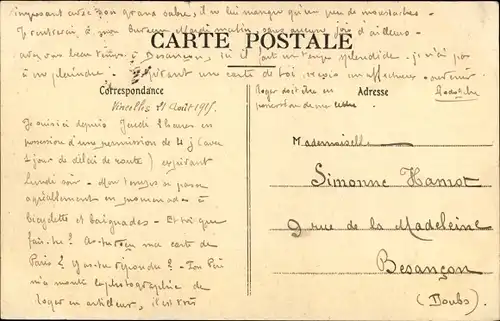 imposant avec son grand sabre, il ne lui manque qu'un peu de moustaches -
bureau Mardi matin, sans aucune joie d'ailleurs -
CARTE POSTALE
Besançon, ici il fait un temps splendide. je n'ai pas
à m'plaindre. une carte de toi, reçois un affectueux souvenir
Correspondance
Adresse
Roger doit être en
possession de ma lettre.
Rodolphe
Vincelles 21 Août 1915.
Je suis ici depuis Jeudi 2 heures en
possession d'une permission de 4 j (avec
1 jour de délai de route) expirant
Lundi soir - Mon temps se passe
agréablement en promenades à
bicyclette et baignades - Et toi que
fais-tu? As-tu reçu ma carte de
Paris? y as-tu répondu? - Ton Père
m'a montré la photographie de
Roger en artilleur, il est très
Mademoiselle
Simonne Hamot
9 rue de la Madeleine
Besançon
(Doubs)